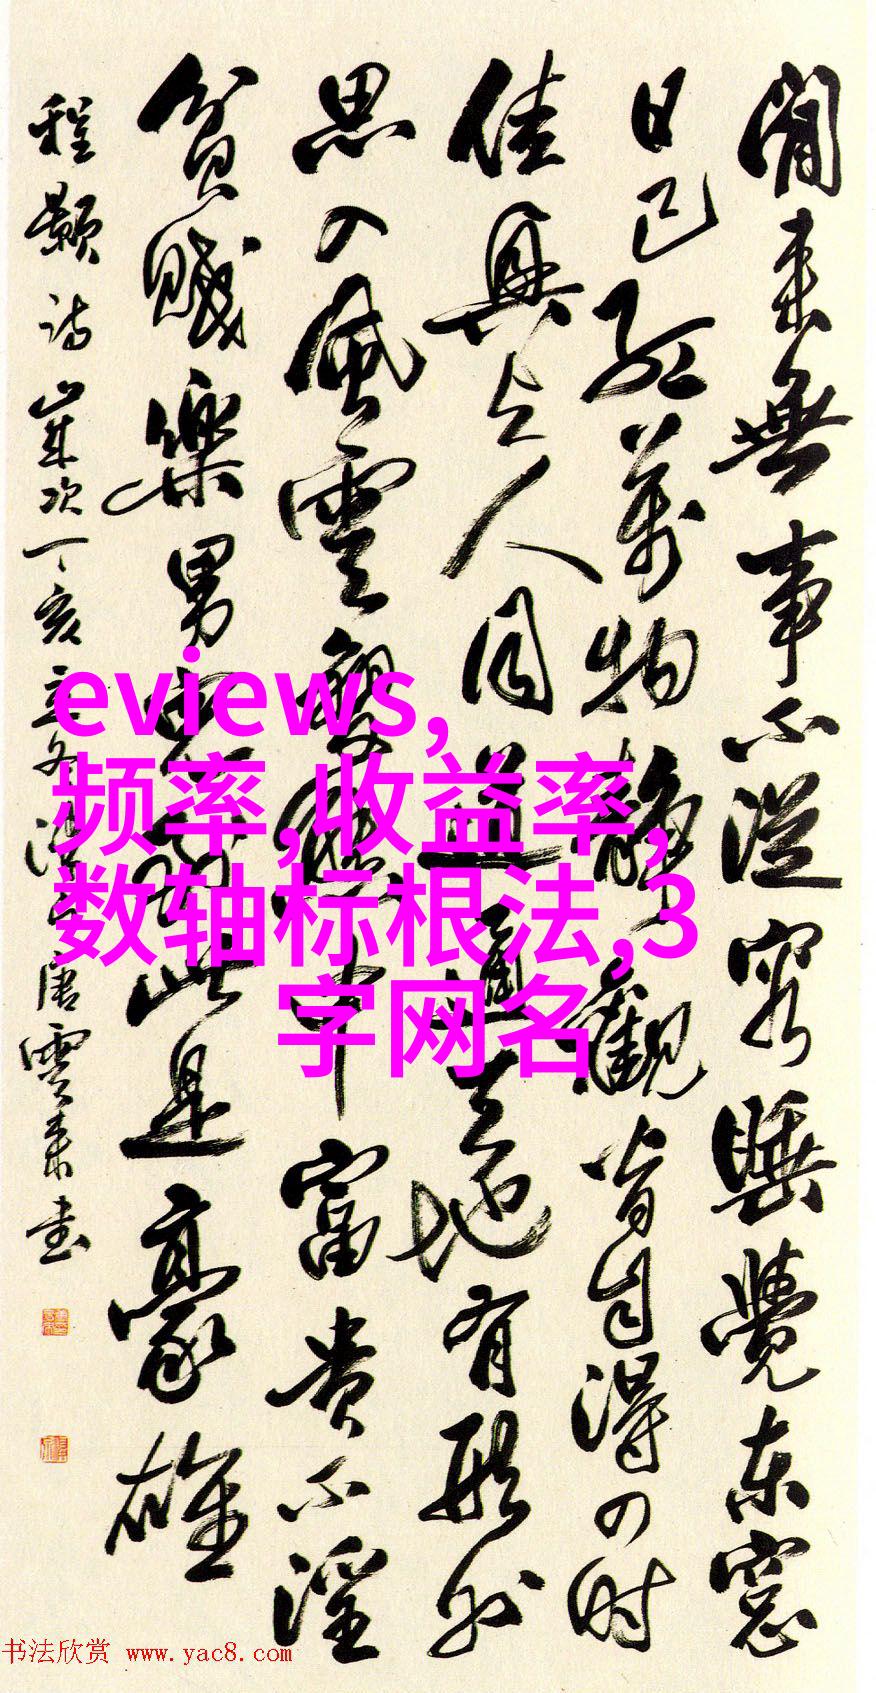 闲来無事不從容睡覺东窓
日已红萬物静觀皆自得四时
佳興与人同道通天地有形外
思入風雲變態中富贵不淫
贫賤樂男兒到此是豪雄
程颢诗歲次丁亥立冬
唐雲来书
eviews,
频率,收益率,
数轴标根法,3
字网名
书法欣赏 www.yac8.com